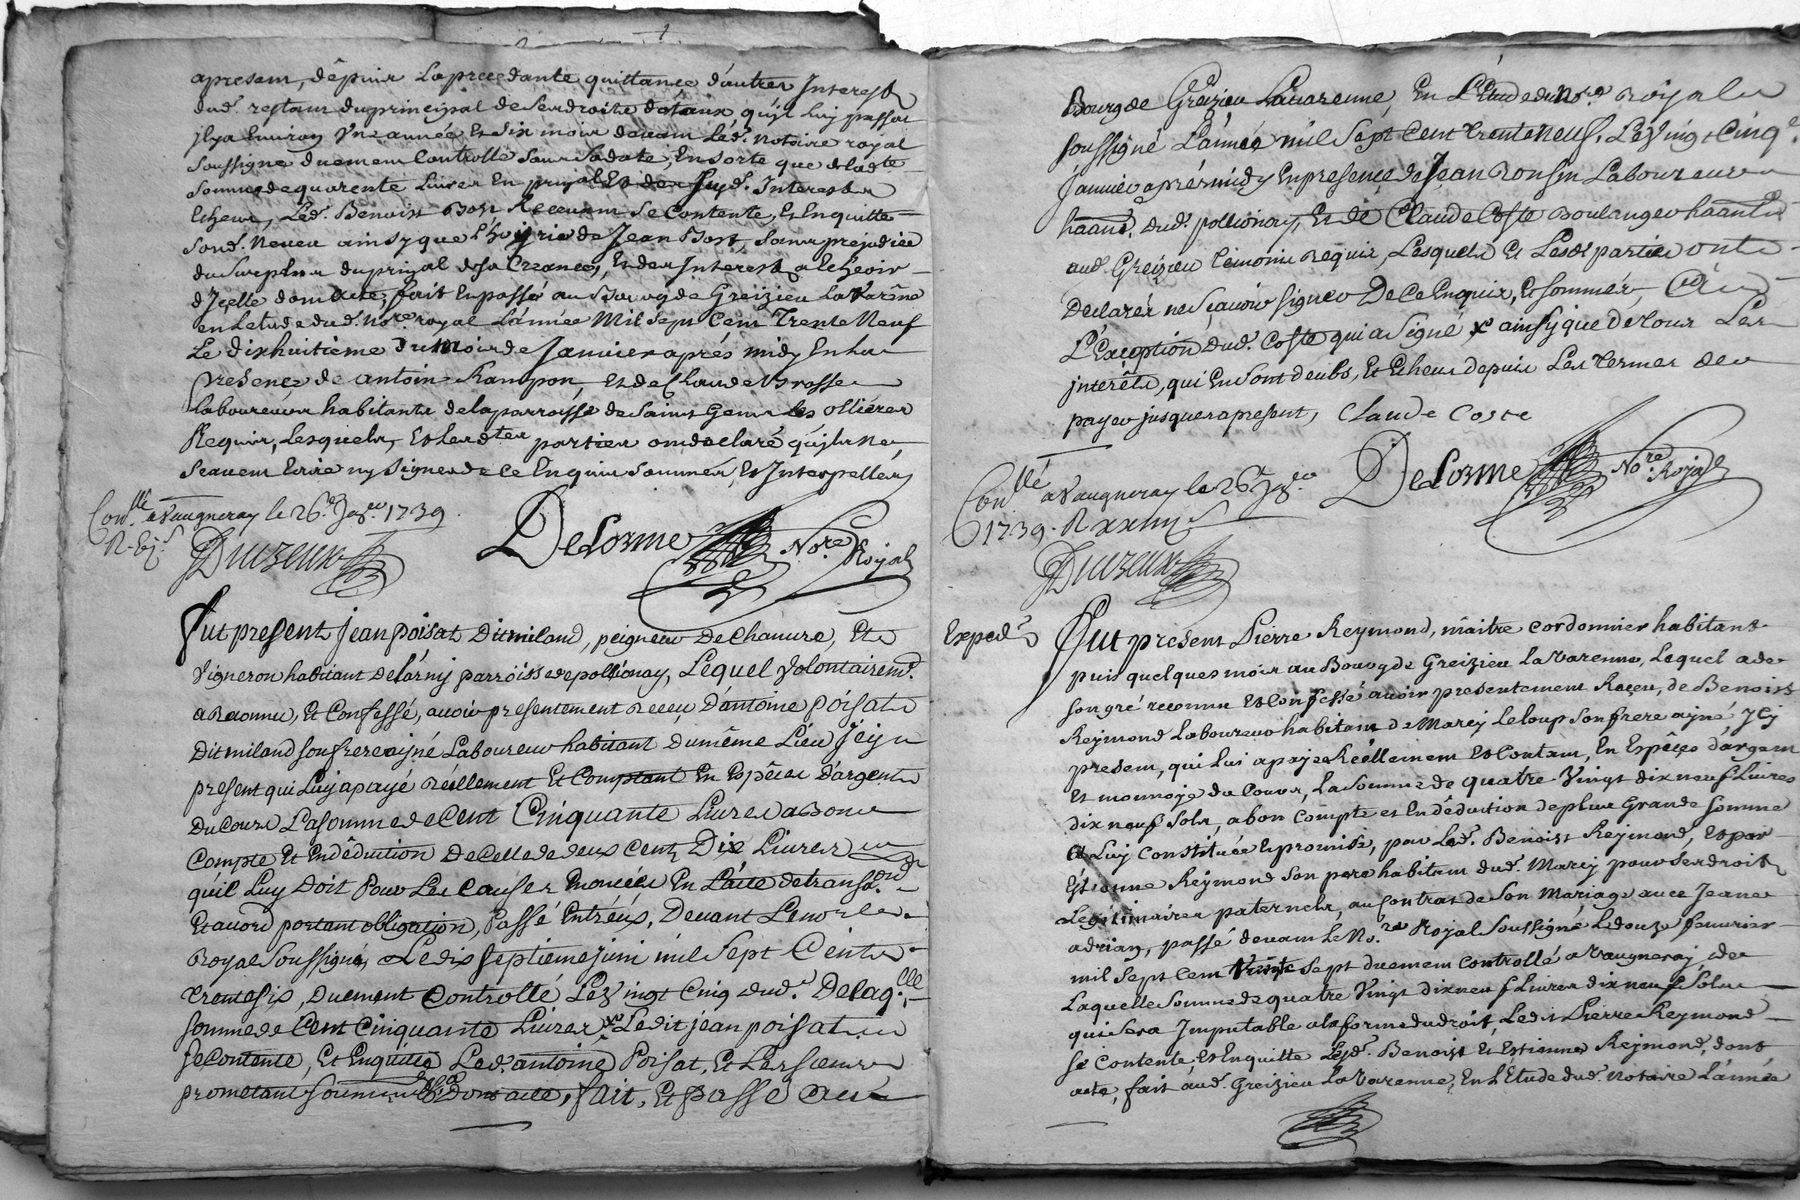 apresent, dêpuis laprecedante quittance d'autres Interests
dud. restant duprincipal de sesdroits dotaux qu'il luy passat
Ilya Environ Une année Et dix mois devant Led. notaire royal
soussigné duement Controllé sous sadate, Ensorte que deladte
somme dequarente Livres En Et des susd. Interests
Echeus, Led. Benoist Bost Recevant se Contente, Et Enquitte
sond. Neveu ainsyque L'hoyrie de Jean Bost, sans prejudice
du surplus du prinpal desa Creance, Et des Interests a Echeoir
d'Icelle dont acte, fait Et passé au Bourg de Greizieu La Varêne
en Letude dud. Nore. royal L'année Mil sept Cent Trente Neuf
Le dixhuitième Du Mois de Janvier aprés midy En la
Presence de antoine Rampon, et de Claude Brosse
Laboureurs habitants de la parroisse de Saint Genis les olliéres
Requis, Lesquels, Et Lesdtes parties ont declaré qu'ils ne
scavent Ecrire ny Signer de ce Enquis sommés, Et Interpellés
Conllé a Vaugneray le 26e. Jaer 1739
DeLorme Nore Royal
Duzeux
Fut present Jean poisat Ditmiland, peigneur De Chanvre, Et
Vigneron habitant Delarny parroisse de pollionay, Lequel Volontairemt.
a Reconnu, Et Confessé, avoir presentement Receu D'antoine poisat
Ditmiland son frere ainé Laboureur habitant Du même Lieu Jcy
present qui Luy a payé Réellement Et Comptant En Espêces D'argent
Du Cours La somme de Cent Cinquante Livres a Bon
Compte Et En déduction De Celle de deux Cent Dix Livres
qu'il Luy Doit Pour Les Causes Enoncées En L'acte de transaon.
Et accord portant obligation, Passé Entr'eux, Devant Le nore
Royal Soussigné, Le dix septieme juin mil sept Cent
trentesix, Duement Controllé Le Vingt Cinq dud. De laqlle.
somme de Cent Cinquante Livres Ledit jean poisat
se Contente, Et Enquitte Led. antoine Poisat, Et Les siens
prometant Dont acte, fait, Et passé au
Bourg de Greizieu Lavarenne, En L'Etude du Nore Royal
soussigné L'année mil sept Cent trente neuf, Le Vingt Cinqe.
janvier aprés midy En presence de Jean Ronsin Laboureur
haant. Dud. pollionay, Et de Claude Coste Boulanger haant
aud. Greizieu témoins Requis, Lesquels Et Lesd. parties ont
Declarér ne sçavoir signer De Ce Enquis, Et sommés,
L'Exception Dud. Coste qui a signé, ainsy que de tous Les
interêts, qui En sont deubs, Et Echeus depuis Les termes de
payer jusques apresent, Claude Coste
DeLorme Nore. Royal
Conllé a Vaugneray le 26e Jaer
1739. R
Duzeux
Exped.
Fut present Pierre Reymond, maitre Cordonnier habitant
puis quelques mois au Bourg de Greizieu la Varenne, Lequel a de
son gré reconnu Et Confessé avoir presentement Receu, de Benoist
Reymond Laboureur habitant de Marcy Le loup son frere ayné Jcy
present, qui Lui a payé Réellement Et Contant, En Espêces d'argent
Et monnoye du Cours, La somme de quatre Vingt dix neuf Livres
dix neuf sols, a bon Compte et En déduction de plus Grande somme
a Luy Constituée Et promise, par Led. Benoist Reymond, Et par
Estienne Reymond son pere habitant dud. Marcy pour ses droits
Legitimaires paternels, au Contrat de son Mariage avec Jeane
adrian, passé devant Le Nore Royal soussigné Le douze fevrier
mil sept Cent trente sept duement Controllé a Vaugneray, de
Laquelle somme de quatre Vingt dix neuf Livres dix neuf sols
qui sera Imputable a la forme du droit, Ledit Pierre Reymond
se Contente, Et Enquitte Lesd. Benoist Et Estienne Reymond, dont
acte, fait aud. Greizieu La Varenne, En L'Etude dud. Notaire L'année